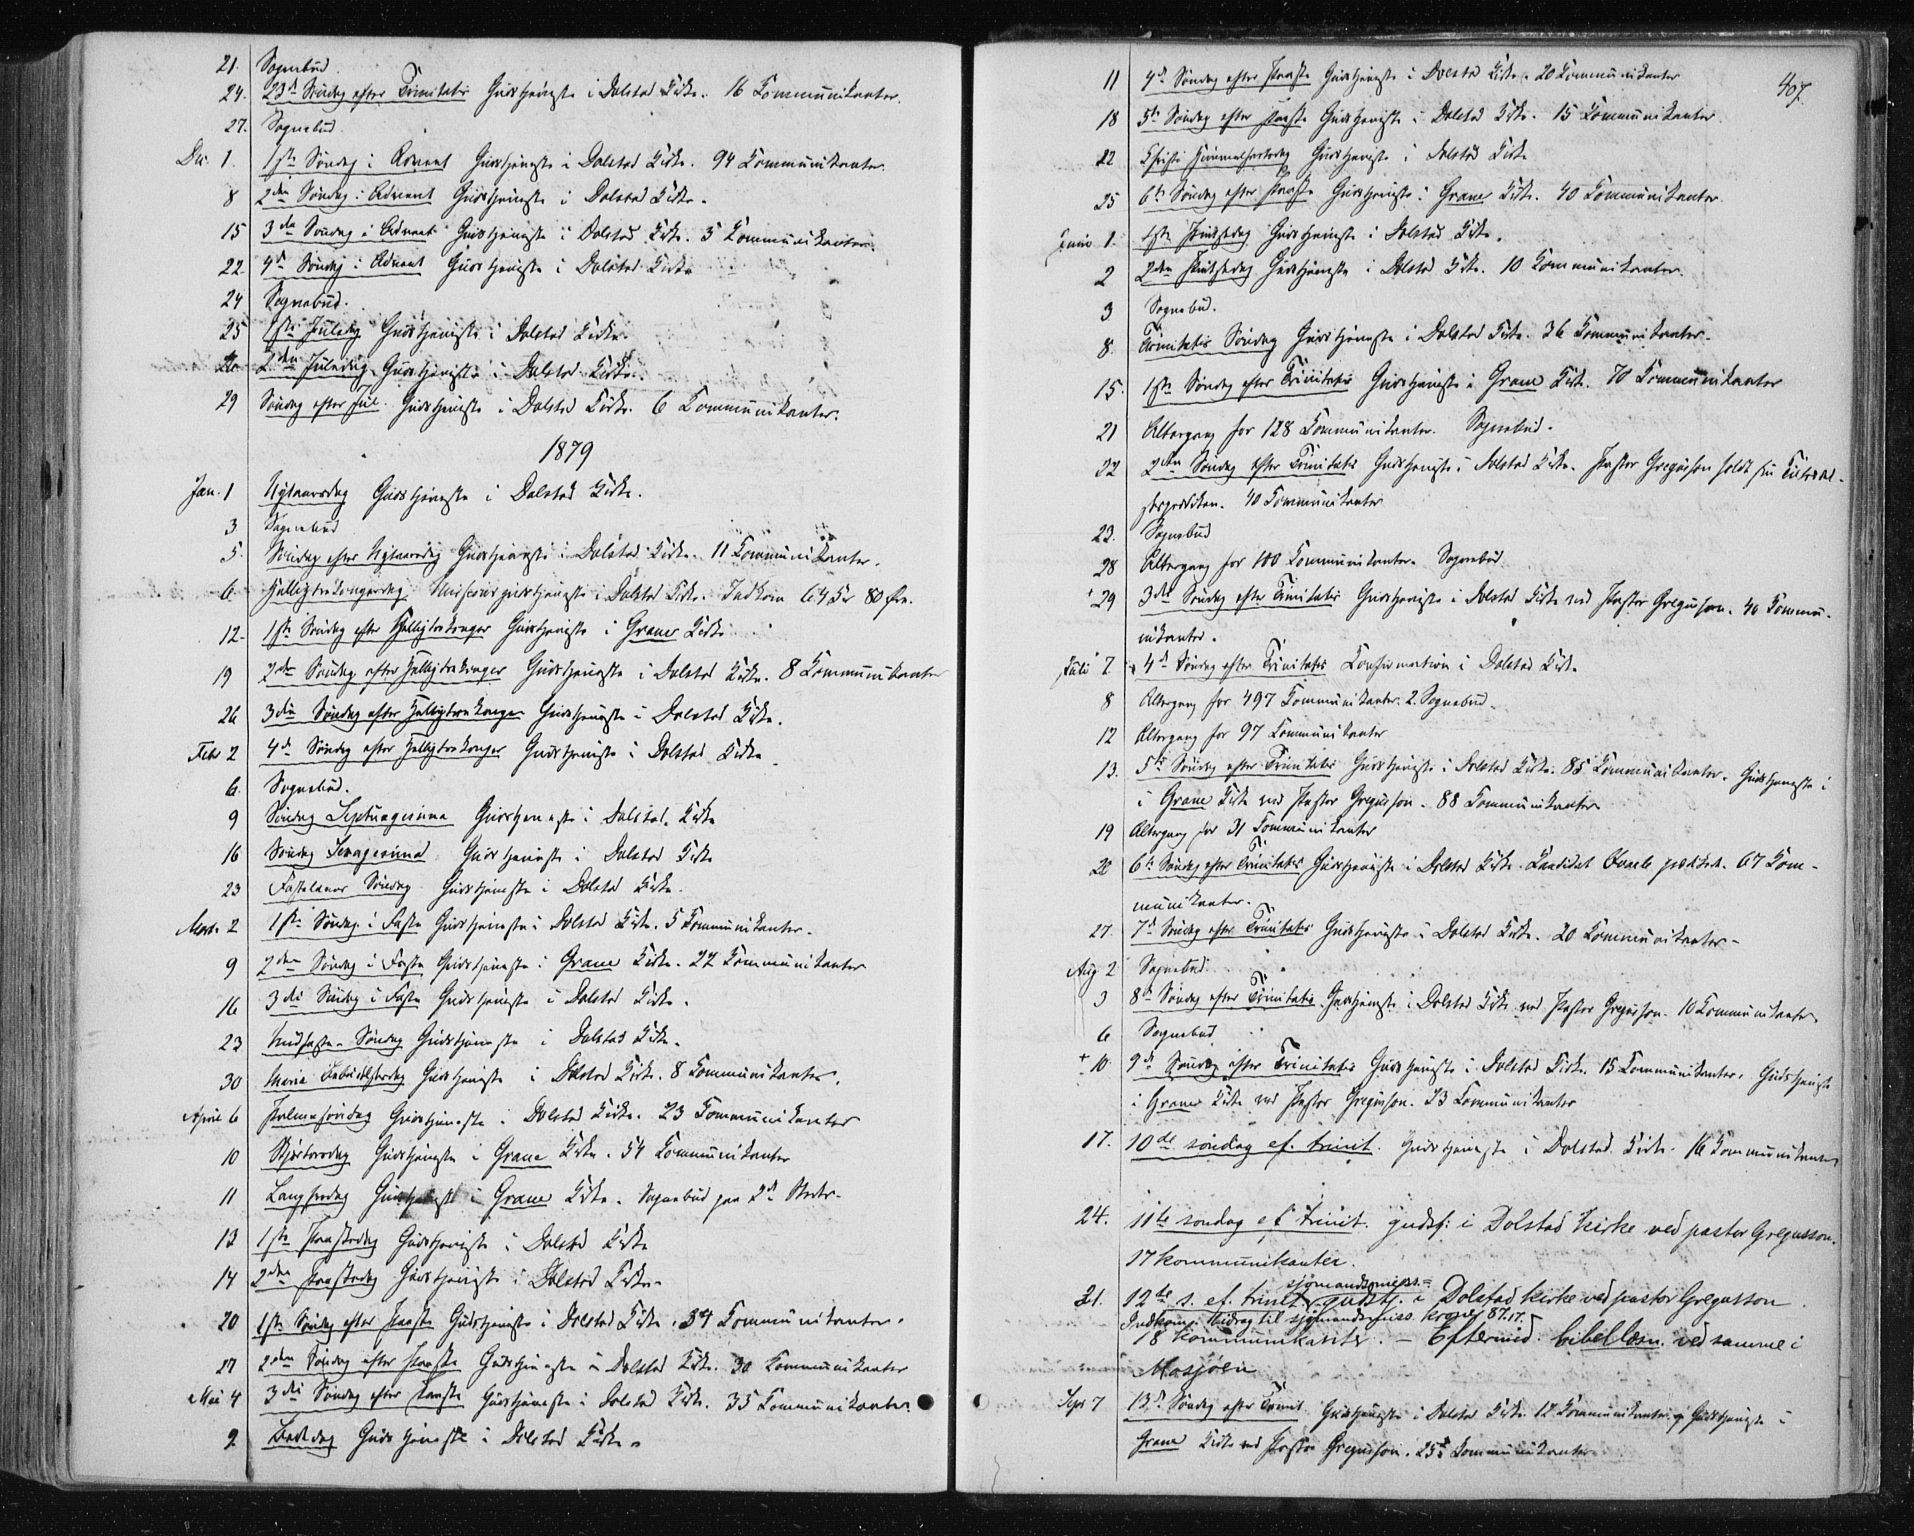 21. Sognebud.
24. 23de Søndag efter Trinitatis Gudstjeneste i Dolstad Kirke. 16 Kommunikanter.
27. Sognebud.
Dec. 1. 1ste Søndag i Advent Gudstjeneste i Dolstad Kirke. 94 Kommunikanter.
8 2den Søndag i Advent Gudstjeneste i Dolstad Kirke.
15 3die Søndag i Advent Gudstjeneste i Dolstad Kirke. 5 Kommunikanter.
22 4de Søndag i Advent Gudstjeneste i Dolstad Kirke
24 Sognebud.
25 1ste Juledag Gudstjeneste i Dolstad Kirke.
26 2den Juledag Gudstjeneste i Dolstad Kirke.
29 Søndag efter Jul. Gudstjeneste i Dolstad Kirke. 6 Kommunikanter.
1879
Jan. 1 Nytaarsdag Gudstjeneste i Dolstad Kirke.
3 Sognebud
5. Søndag efter Nytaarsdag Gudstjeneste i Dolstad Kirke. 11 Kommunikanter.
6 Helligtrekongersdag Missionsgudstjeneste i Dolstad Kirke. Indkom 64 Kr 80 Øre.
12- 1ste Søndag efter Helligtrekonger Gudstjeneste i Grane Kirke
19 2den Søndag efter Helligtrekonger Gudstjeneste i Dolstad Kirke. 8 Kommunikanter
26 3die Søndag efter Helligtrekonger Gudstjeneste i Dolstad Kirke.
Febr 2 4de Søndag efter Helligtrekonger Gudstjeneste i Dolstad Kirke
6. Sognebud.
9 Søndag Septuagesima Gudstjeneste i Dolstad Kirke
16 Søndag Sexagesima Gudstjeneste i Dolstad Kirke
23 Fastelavns Søndag Gudstjeneste i Dolstad Kirke.
Marts 2 1ste Søndag i Faste Gudstjeneste i Dolstad Kirke. 5 Kommunikanter.
9 2den Søndag i Faste Gudstjeneste i Grane Kirke. 22 Kommunikanter
16 3die Søndag i Faste Gudstjeneste i Dolstad Kirke.
23 Midfaste-Søndag Gudstjeneste i Dolstad Kirke.
30 Maria Bebudelsesdag Gudstjeneste i Dolstad Kirke. 8 Kommunikanter.
April 6 Palmesøndag Gudstjeneste i Dolstad Kirke. 23 Kommunikanter
10 Skjærtorsdag Gudstjeneste i Grane Kirke. 54 Kommunikanter
11 Langfredag Gudstjeneste i Grane Kirke. Sognebud paa 2de Steder.
13 1ste Paaskedag Gudstjeneste i Dolstad Kirke
14 2den Paaskedag Gudstjeneste i Dolstad Kirke.
20 1ste Søndag efter Paaske Gudstjeneste i Dolstad Kirke. 34 Kommunikanter.
27 2den Søndag efter Paaske Gudstjeneste i Dolstad Kirke. 30 Kommunikanter
Mai 4 3die Søndag efter Paaske Gudstjeneste i Dolstad Kirke. 35 Kommunikanter.
9 Bededag Gudstjeneste i Dolstad Kirke.
407.
11 4de Søndag efter Paaske Gudstjeneste i Dolstad Kirke. 20 Kommunikanter
18 5te Søndag efter Paaske Gudstjeneste i Dolstad Kirke. 15 Kommunikanter
22 Christi Himmelfartsdag Gudstjeneste i Dolstad Kirke
25 6te Søndag efter Paaske Gudstjeneste i Grane Kirke. 40 Kommunikanter.
Juni 1. 1ste Pintsedag Gudstjeneste i Dolstad Kirke.
2 2den Pintsedag Gudstjeneste i Dolstad Kirke. 10 Kommunikanter.
3 Sognebud.
8. Trinitatis Søndag Gudstjeneste i Dolstad Kirke. 36 Kommunikanter.
15. 1ste Søndag efter Trinitatis Gudstjeneste i Grane Kirke. 70 Kommunikanter
21 Altergang for 128 Kommunikanter. Sognebud.
22 2den Søndag efter Trinitatis Gudstjeneste i Dolstad Kirke. Pastor Gregusson holdt sin Tiltrædel-
sesprædiken. 40 Kommunikanter
23. Sognebud
28 Altergang for 100 Kommunikanter. Sognebud
+ 29 3die Søndag efter Trinitatis Gudstjeneste i Dolstad Kirke ved Pastor Gregusson. 40 Kommu-
nikanter.
Juli 7 4de Søndag efter Trinitatis Confirmation i Dolstad Kirke
8 Altergang for 497 Kommunikanter. 2 Sognebud.
12 Altergang for 97 Kommunikanter
13. 5te Søndag efter Trinitatis Gudstjeneste i Dolstad Kirke. 85 Kommunikanter. Gudstjeneste i
i Grane Kirke ved Pastor Gregusson. 88 Kommunikanter
19 Altergang for 31 Kommunikanter
20 6te Søndag efter Trinitatis Gudstjeneste i Dolstad Kirke. Kandidat prædiked. 67 Kom-
munikanter.
27. 7de Søndag efter Trinitatis Gudstjeneste i Dolstad Kirke. 20 Kommunikanter-
Aug 2 Sognebud.
3 8de Søndag efter Trinitatis Gudstjeneste i Dolstad Kirke ved Pastor Gregusson. 10 Kommunikanter.
6 Sognebud
+ 10. 9de Søndag efter Trinitatis Gudstjeneste i Dolstad Kirke. 15 Kommunikanter. Gudstjeneste
i Grane Kirke ved Pastor Gregusson. 23 Kommunikanter
17. 10de søndag ef. trinit. Gudstjeneste i Dolstad Kirke. 16 Kommunikanter
24. 11te søndag ef trinit. gudst: i Dolstad kirke ved pastor Gregusson.
17 kommunikanter.
sjømandsmiss.=
31. 12te s. ef. trinit. gudstj. i Dolstad kirke ved pastor Gregusson
Indkom. bidrag til sjømandsmiss. kroner 87.17.
18 kommunikanter. – Eftermid. bibellæsn. ved samme i
Mosjøen
Sept 7 13de Søndag efter Trinit. Gudstjeneste i Dolstad Kirke. 12 Kommunikanter. Gudstjeneste i
Grane Kirke ved Pastor Gregusson. 25 Kommunikanter